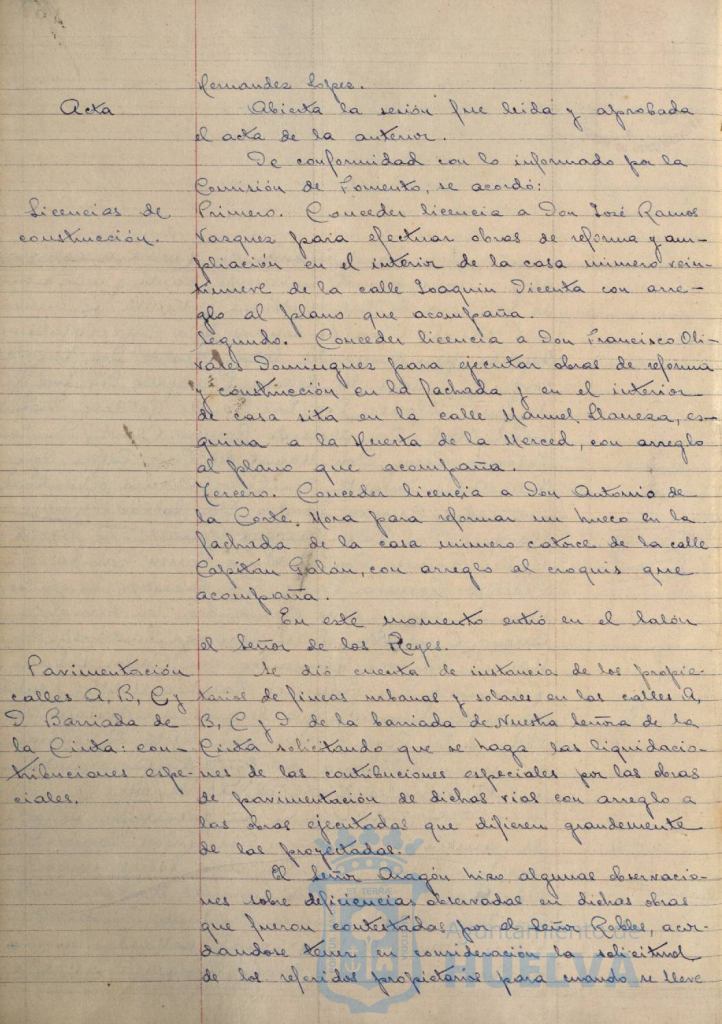 Hernandez Lopez.
Acta
Abierta la sesión fue leida y aprobada
el acta de la anterior.
De conformidad con lo informado por la
Comisión de Fomento, se acordó:
Licencias de
construcción.
Primero. Conceder licencia a Don José Ramos
Vazquez para efectuar obras de reforma y am-
pliación en el interior de la casa número vein-
tinueve de la calle Joaquin Dicenta con arre-
glo al plano que acompaña.
Segundo. Conceder licencia a Don Francisco Oli-
vares Dominguez para ejecutar obras de reforma
y construcción en la fachada y en el interior
de casa sita en la calle Manuel Llaneza, es-
quina a la Huerta de la Merced, con arreglo
al plano que acompaña.
Tercero. Conceder licencia a Don Antonio de
la Corte Mora para reformar un hueco en la
fachada de la casa número catorce de la calle
Capitan Galán, con arreglo al croquis que
acompaña.
En este momento entró en el Salón
el Señor de los Reyes.
Pavimentación
calles A, B, C y
D Barriada de
la Cinta: con-
tribuciones espe-
ciales.
Se dió cuenta de instancia de los propie-
tarios de fincas urbanas y solares en las calles A,
B, C y D de la barriada de Nuestra Señora de la
Cinta solicitando que se haga las liquidacio-
nes de las contribuciones especiales por las obras
de pavimentación de dichas vias con arreglo a
las obras ejecutadas que difieren grandemente
de las proyectadas.
El Señor Aragón hizo algunas observacio-
nes sobre deficiencias observadas en dichas obras
que fueron contestadas por el Señor Robles, acor-
dandose tener en consideración la solicitud
de los referidos propietarios para cuando se lleve
Ayuntamiento de
HUELVA